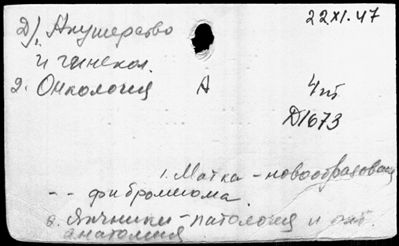 22 XI. 47
Д), Акушерство
и гинекол.
2. Онкология А 4т
D1673
1. Матка - новообразован
- - фибромиома.
в. Яичники - патология и пат.
анатомия